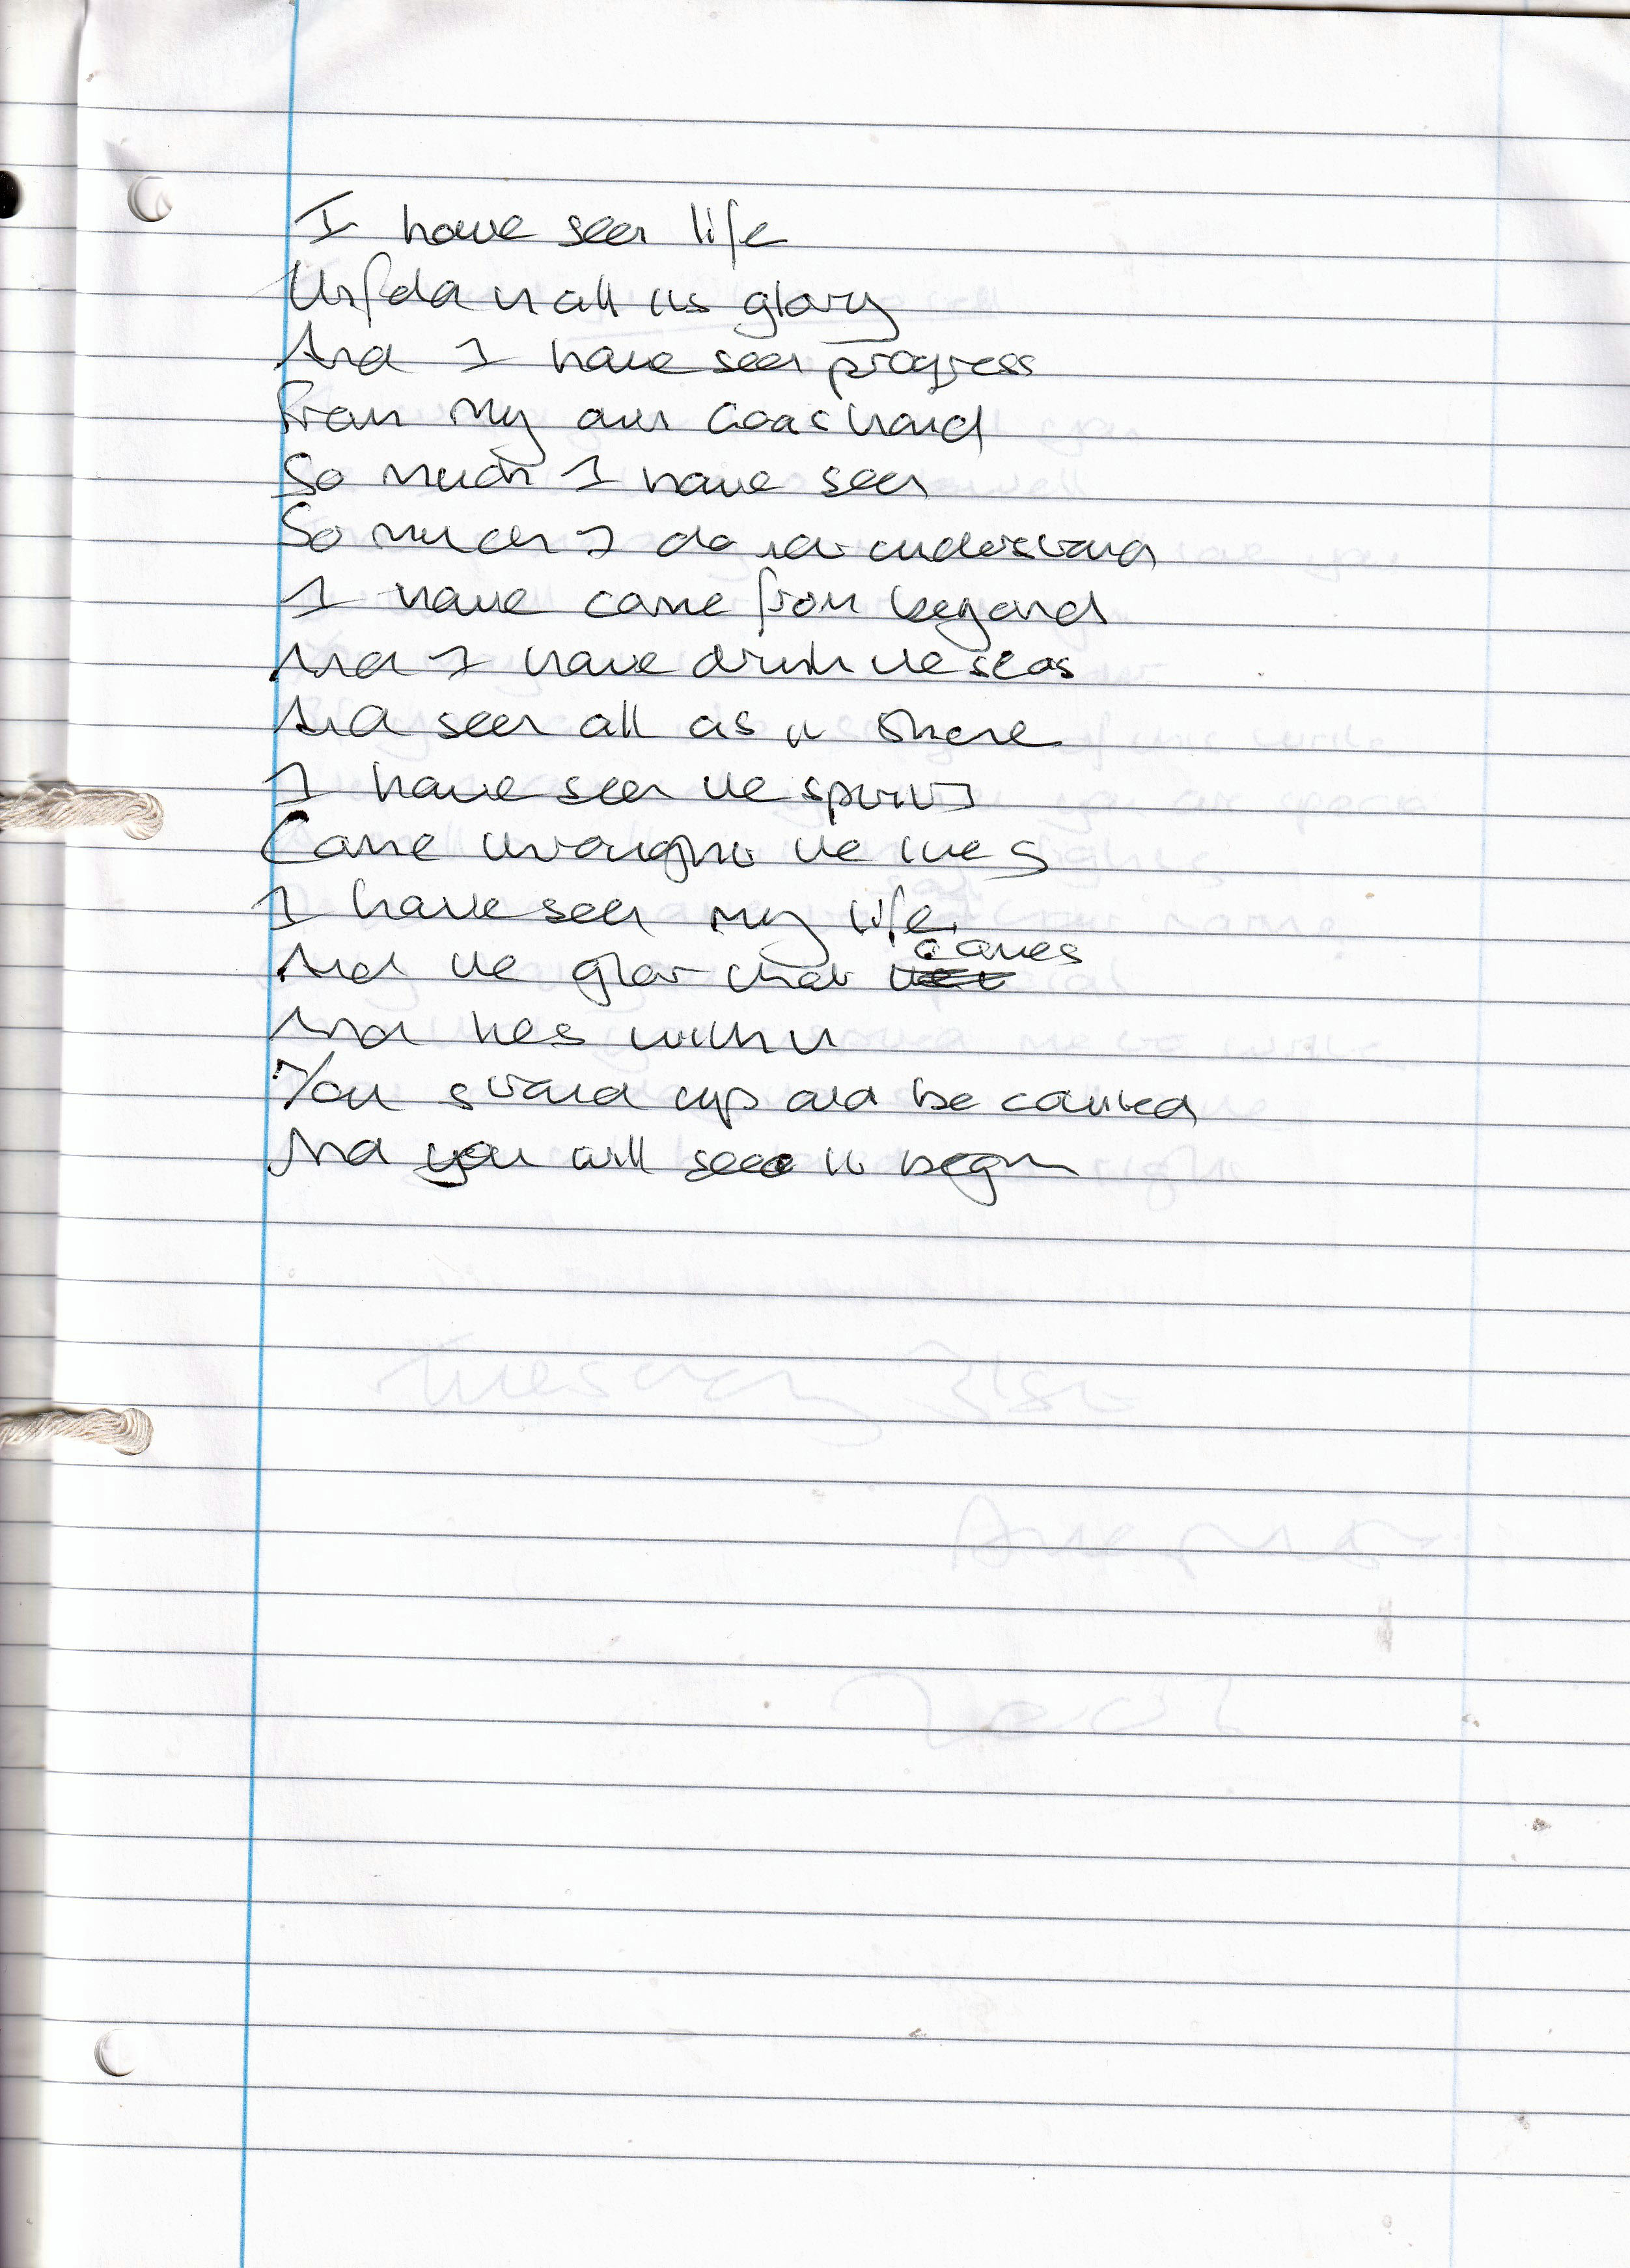 I have seen life
Unfold in all its glory
And I have seen progress
From my own Gods hand
So much I have seen
So much I do not understand
I have come from beyond
And I have drunk the seas
And seen all as it shone
I have seen the spirits
Come throught the
I have seen my life
And the that comes
And lies within
You stand up and be counted
And you will see it begin